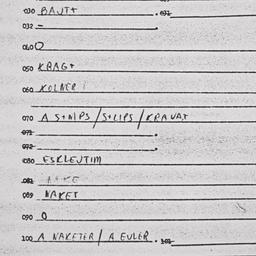 030 BAJT+ . 031
032 -
040 O
050 KRAG+
060 KOLNER
070 A S+NIPS/S+LIPS/KRAVAT
071 .
072 .
080 ESKLEJTIM
081
089 NAKET
090 O
100 A NAKETER/A EULER . 101